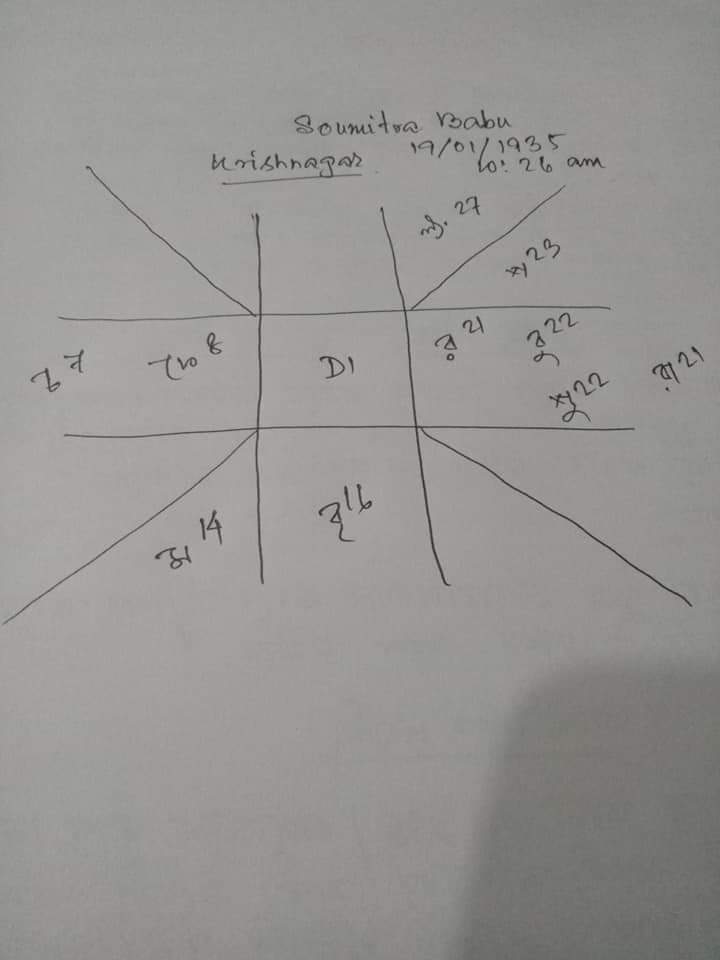 Soumitra Babu
Krishnagar 19/01/1935
10:26 am
ল. 27
শ 23
চ 7 কে 8 D1 র 21 বু 22
শু 22 রা 21
ম 14 বৃ 16